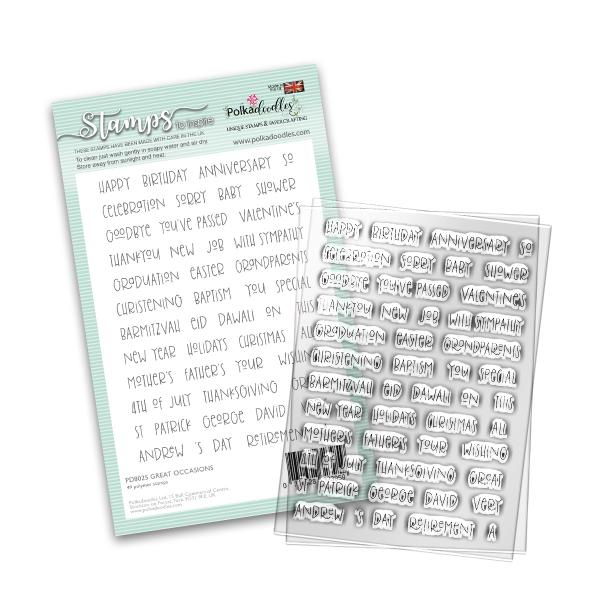 Stamps to inspire
MADE IN
THE UK
Polkadoodles
UNIQUE STAMPS & PAPERCRAFTING
www.polkadoodles.com
THESE STAMPS HAVE BEEN MADE WITH CARE IN THE UK
To clean just wash gently in soapy water and air dry.
Store away from sunlight and heat.
HAPPY BIRTHDAY ANNIVERSARY SO
CELEBRATION SORRY BABY SHOWER
GOODBYE YOU'VE PASSED VALENTINE'S
THANKYOU NEW JOB WITH SYMPATHY
GRADUATION EASTER GRANDPARENTS
CHRISTENING BAPTISM YOU SPECIAL
BARMITZVAH EID DAWALI ON THIS
NEW YEAR HOLIDAYS CHRISTMAS
MOTHER'S FATHER'S YOUR WISHIN
4TH OF JULY THANKSGIVING
ST PATRICK GEORGE DAVID
ANDREW 'S DAY RETIREMEN
PD8025 GREAT OCCASIONS
49 polymer stamps
Polkadoodles Ltd,
www.polkadoodles.com
HAPPY BIRTHDAY ANNIVERSARY SO
CELEBRATION SORRY BABY SHOWER
GOODBYE YOU'VE PASSED VALENTINE'S
THANKYOU NEW JOB WITH SYMPATHY
GRADUATION EASTER GRANDPARENTS
CHRISTENING BAPTISM YOU SPECIAL
BARMITZVAH EID DAWALI ON THIS
NEW YEAR HOLIDAYS CHRISTMAS ALL
MOTHER'S FATHER'S YOUR WISHING
JULY THANKSGIVING GREAT
ST PATRICK GEORGE DAVID VERY
ANDREW 'S DAY RETIREMENT A